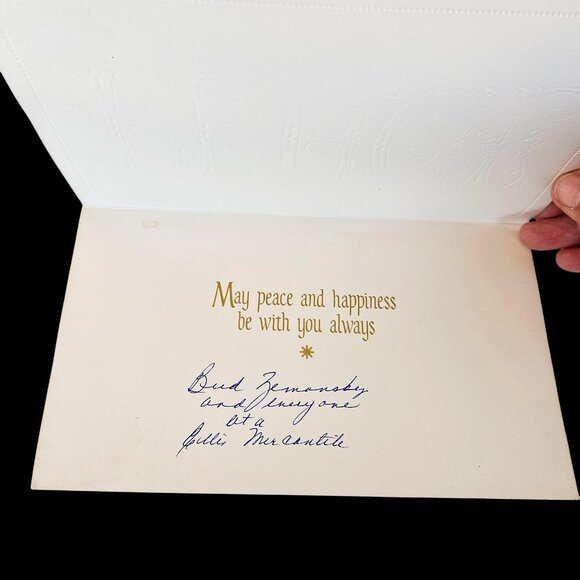 May peace and happiness
be with you always
Bud Zemansky
and everyone
at
Mercantile